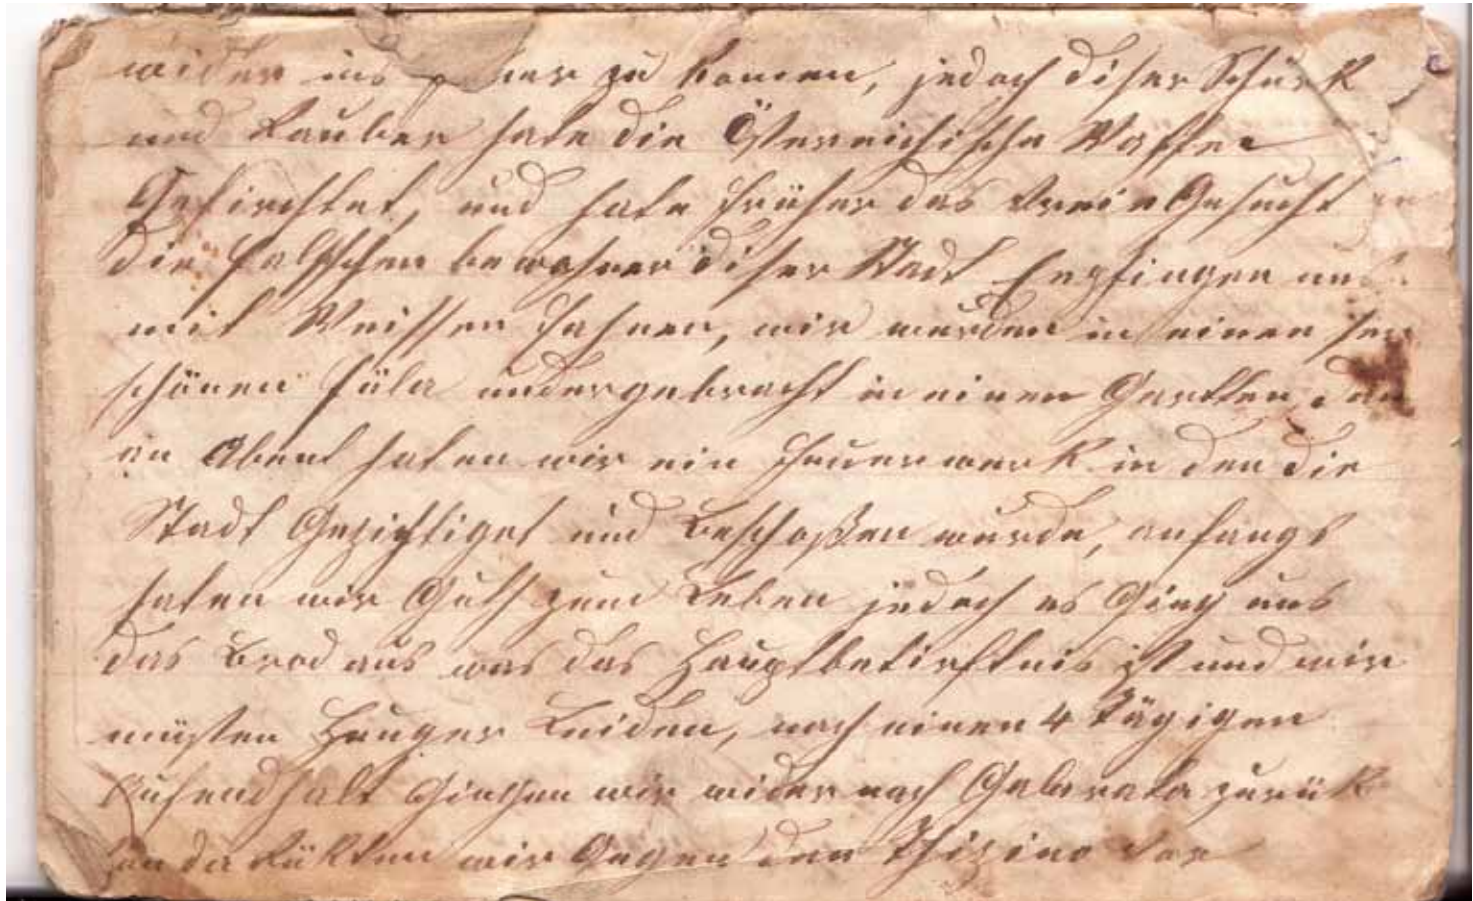 wider ins zu komen, jedoch diser Schurk
und Rauber hate die Österreichische Waffen
Gefirchtet, und hate früher das Weite Gesucht
die falschen bewohner diser Stadt Empfingen uns
mit Weissen Fahnen, wir wurden in einen ser
schönen undergebracht in einen Gartten,
an Abent haten wir ein Feuerwerk in den die
Stadt Gezichtiget und Beschoßen wurde, anfangs
haten wir Guth zum Leben jedoch es Ging uns
das Brod aus was das Hauptbetirftnis ist und wir
mußten Hunger Leiden, nach einen 4 Tägigen
Aufendhalt Gingen wir wider nach Galarate zurük
von da rükten wir Gegen den Thizino vor